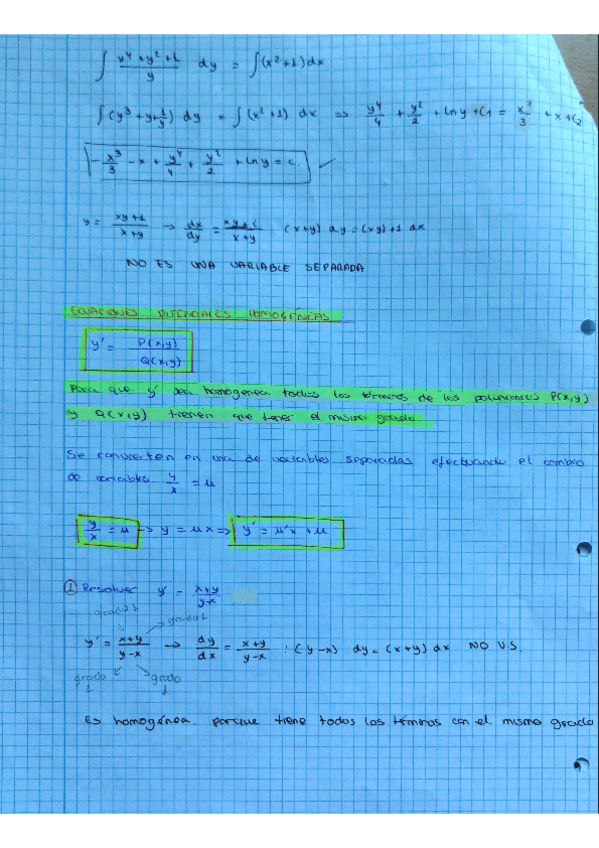 ∫ (y⁴+y²+1)/y dy = ∫(x²+1)dx
∫(y³+y+1/y) dy = ∫(x²+1) dx => y⁴/4 + y²/2 + lny + C1 = x³/3 + x + C2
-x³/3 - x + y⁴/4 + y²/2 + lny = c. ✓
y = (xy+1)/(x+y) → dx/dy = (x+y) dy = (xy)+1 dx
NO ES UNA VARIABLE SEPARADA
ECUACIONES DIFENCIALES HOMOGÉNEAS
y' = P(x,y)/Q(x,y)
Para que y' sea homogénea todos los términos de los polinomios P(x,y)
y Q(x,y) tienen que tener el mismo grado
Se convierten en una de variables separadas efectuando el cambio
de variables y/x = u
y/x = u → y = ux => y' = u'x + u
① Resolver y' = (x+y)/(y-x)
grado 1 grado 1
y' = (x+y)/(y-x) → dy/dx = (x+y)/(y-x) : (y-x) dy = (x+y) dx NO V.S.
grado 1 grado 1
Es homogénea porque tiene todos los términos con el mismo grado